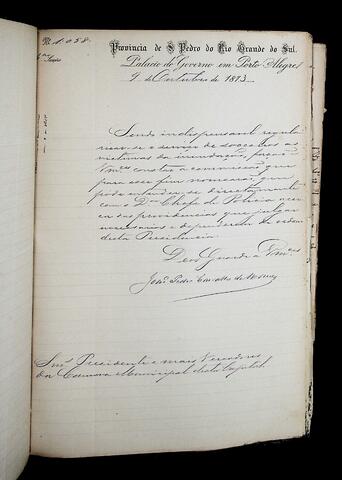 N. 1058
2ª Secção
Provincia de S Pedro do Rio Grande do Sul.
Palacio do Governo em Porto Alegre
9 de Outubro de 1873
Sendo indispensavel regula
risar-se o serviço de soccorros ás
victimas da inundação, faça
Vmces constar á commissão que
para esse fim nomearão que
pode entender-se directamente
com o Dr. Chefe de Policia acer
ca das providencias que julgar
necessarias e dependerem de ordem
desta Presidencia.
Deos Guarde a Vmces
José Pedro Carvalho de Moraes
Snrs. Presidente e mais Vereadores
da Camara Municipal desta Capital.